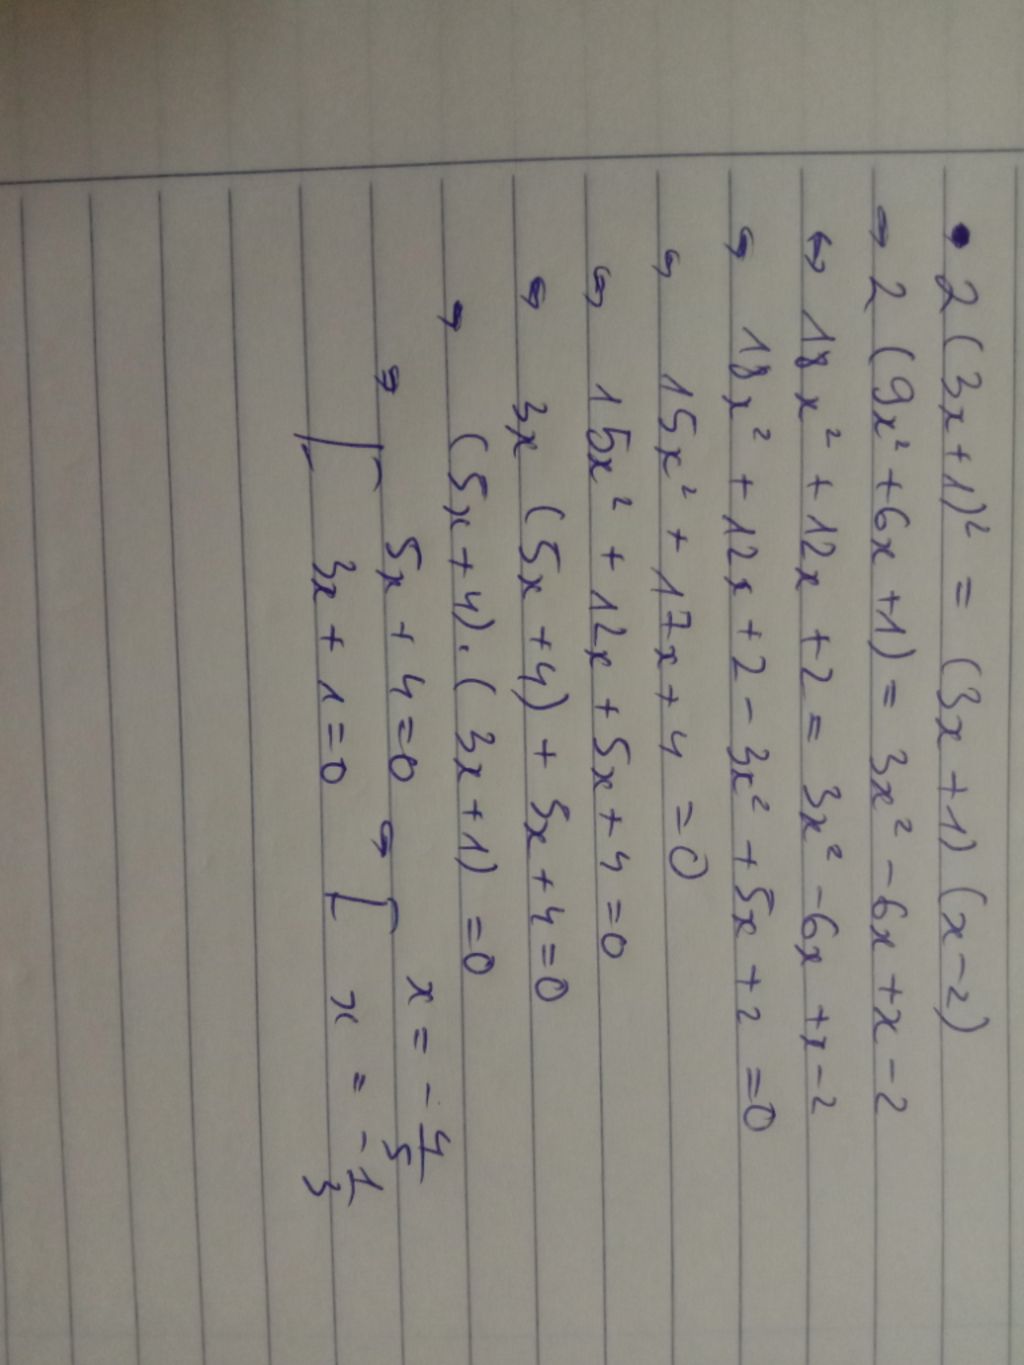 • 2(3x+1)² = (3x+1)(x-2)
⇔ 2(9x²+6x+1) = 3x²-6x+x-2
⇔ 18x²+12x+2 = 3x²-6x+x-2
⇔ 18x²+12x+2-3x²+5x+2 = 0
⇔ 15x²+17x+4 = 0
⇔ 15x²+12x+5x+4 = 0
⇔ 3x(5x+4)+5x+4 = 0
⇔ (5x+4).(3x+1) = 0
⇔ [ 5x+4=0 ⇔ [ x = -4/5
3x+1=0 x = -1/3